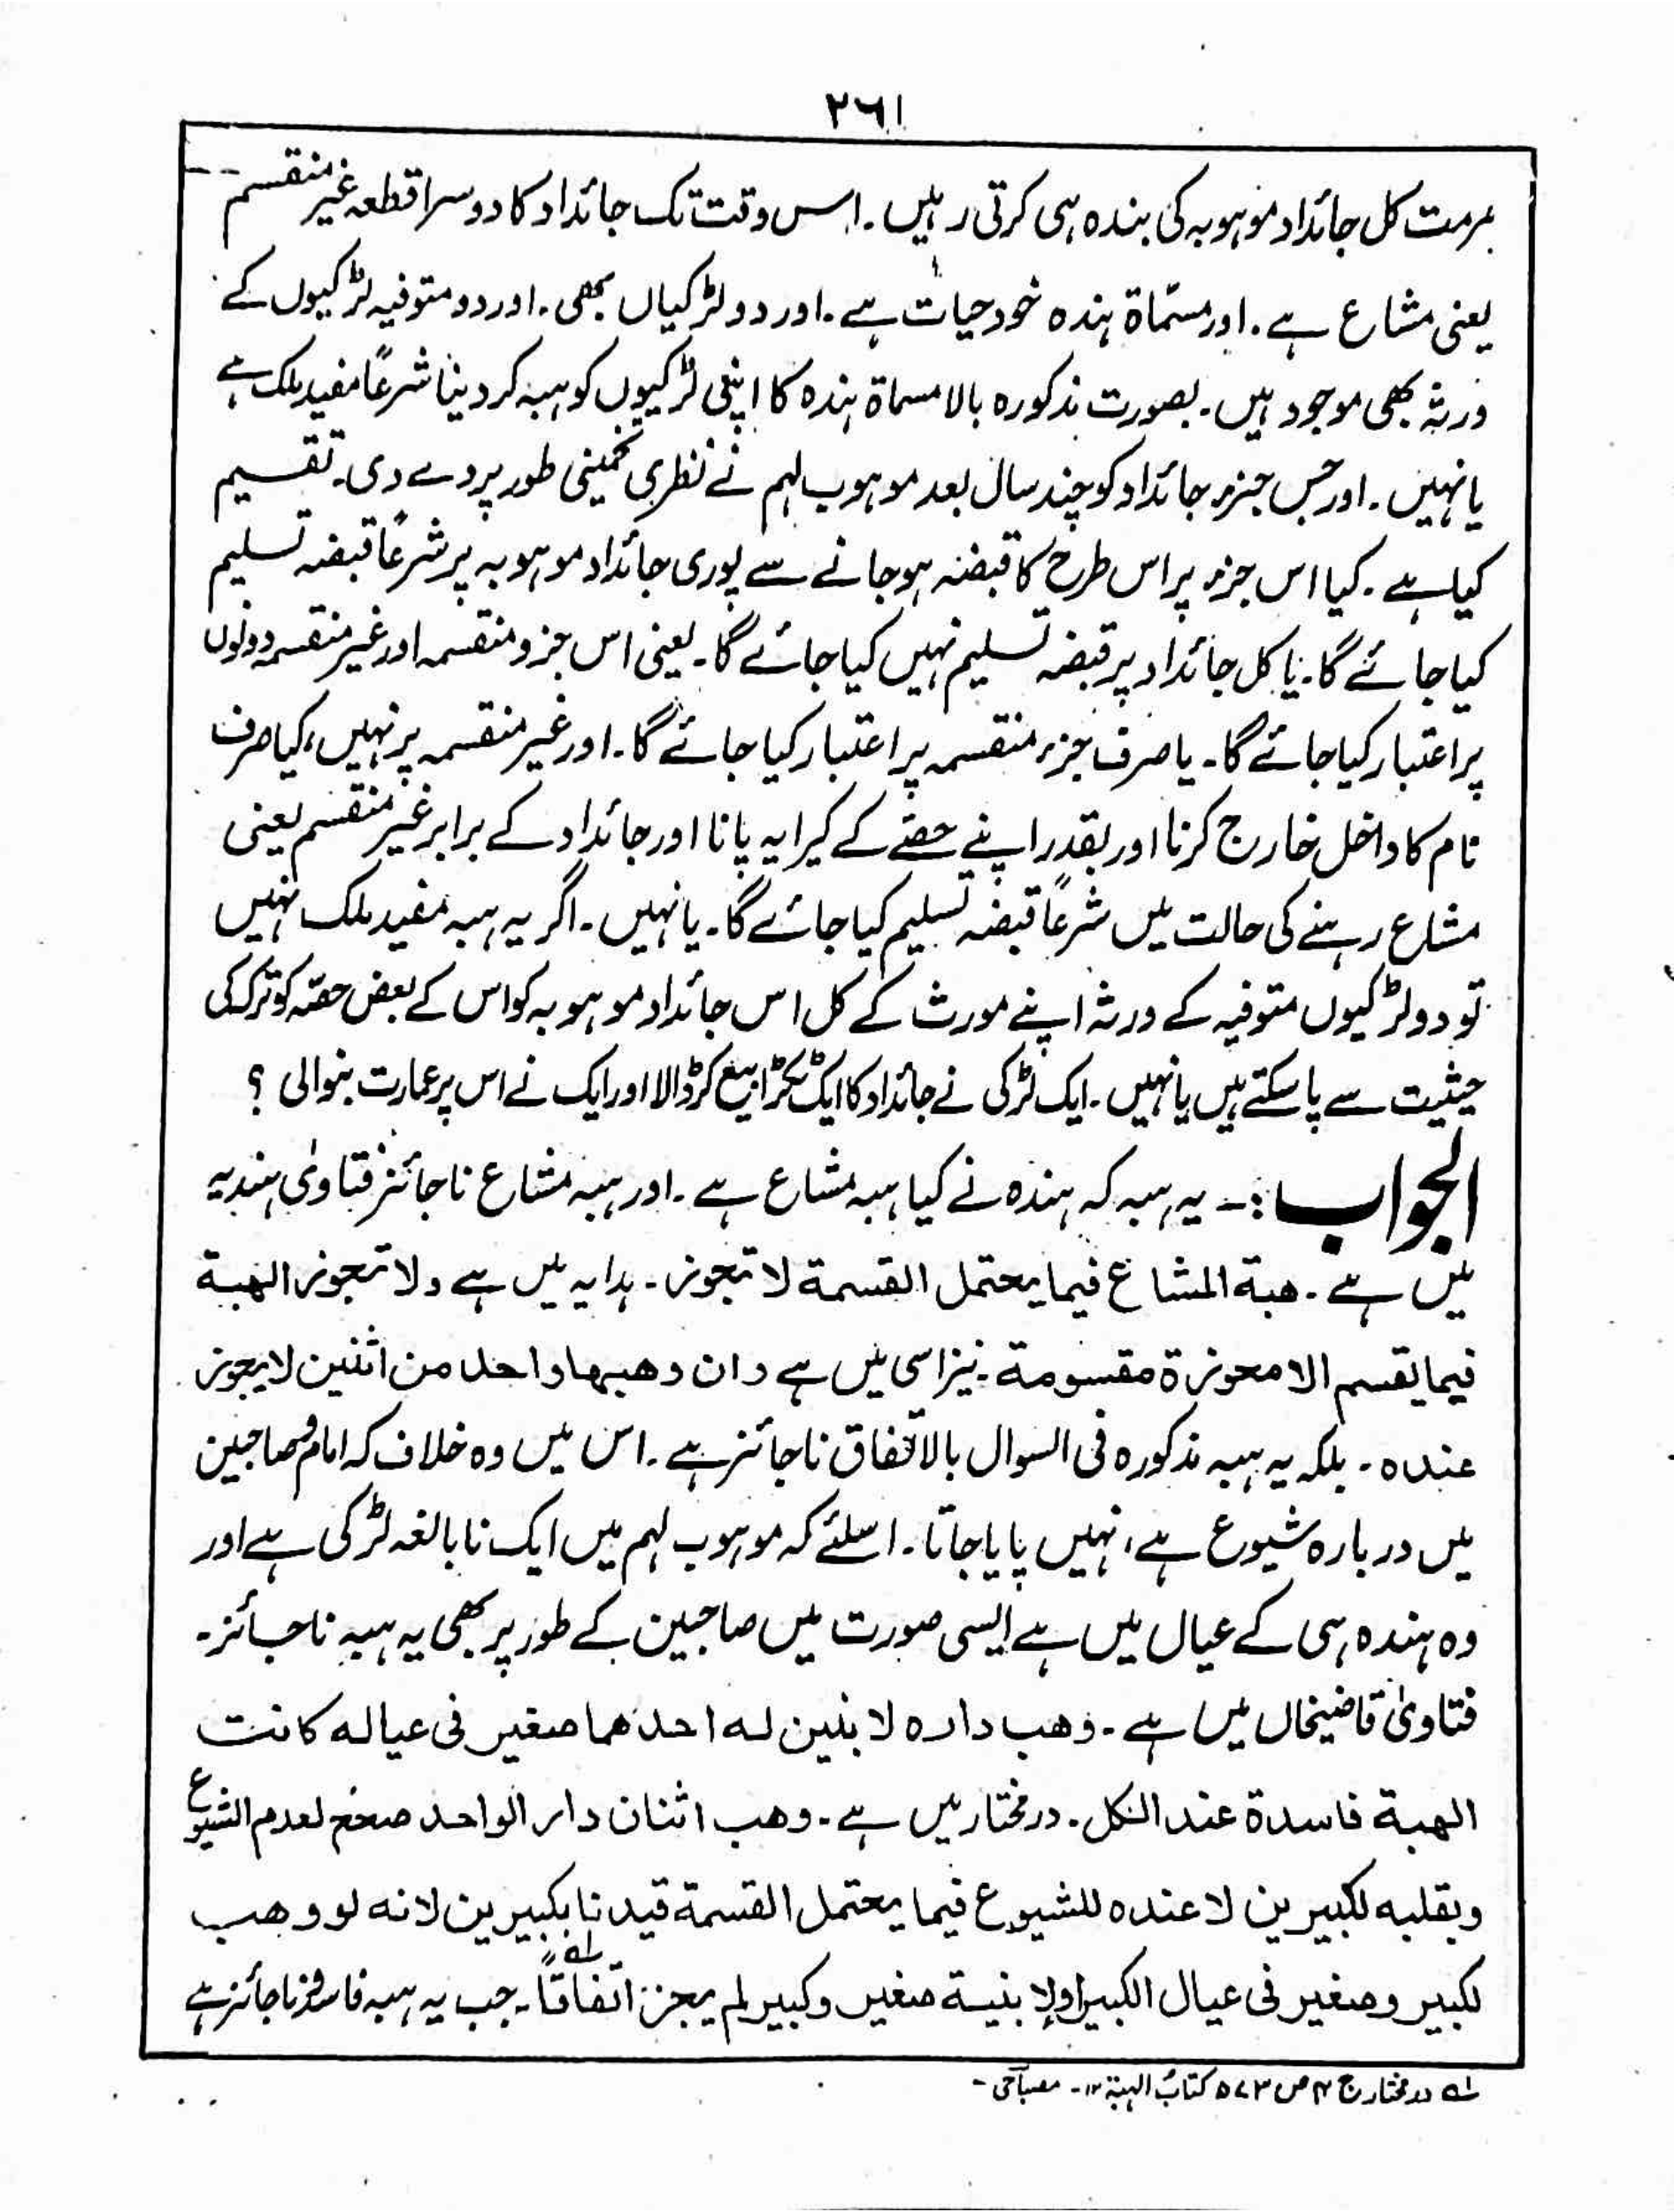 ۲۶۱
مرمت کل جائداد موہوبہ کی ہندہ ہی کرتی رہیں۔ اس وقت تک جائداد کا دوسرا قطعہ غیر منقسم
یعنی مشاع ہے۔ اور مسمّاۃ ہندہ خود حیات ہے۔ اور دو لڑکیاں بھی۔ اور دو متوفیہ لڑکیوں کے
ورثہ بھی موجود ہیں۔ بصورت مذکورہ بالا مسماۃ ہندہ کا اپنی لڑکیوں کو ہبہ کر دینا شرعًا مفید ملک ہے
یا نہیں۔ اور جس جزء جائداد کو چند سال بعد موہوب لہم نے نظری تخمینی طور پر دے دی۔ تقسیم
کیا ہے۔ کیا اس جزء پر اس طرح کا قبضہ ہو جانے سے پوری جائداد موہوبہ پر شرعًا قبضہ تسلیم
کیا جائے گا۔ یا کل جائداد پر قبضہ تسلیم نہیں کیا جائے گا۔ یعنی اس جزو منقسمہ اور غیر منقسمہ دونوں
پر اعتبار کیا جائے گا۔ یا صرف جزء منقسمہ پر اعتبار کیا جائے گا۔ اور غیر منقسمہ پر نہیں، کیا صرف
نام کا داخل خارج کرنا اور بقدر اپنے حصّے کے کرایہ پانا اور جائداد کے برابر غیر منقسم یعنی
مشاع رہنے کی حالت میں شرعًا قبضہ تسلیم کیا جائے گا۔ یا نہیں۔ اگر یہ ہبہ مفید ملک نہیں
تو دو لڑکیوں متوفیہ کے ورثہ اپنے مورث کے کل اس جائداد موہوبہ کو اس کے بعض حصّہ کو ترکہ کی
حیثیت سے پا سکتے ہیں یا نہیں۔ ایک لڑکی نے جائداد کا ایک ٹکڑا بیع کر ڈالا اور ایک نے اس پر عمارت بنوالی ؟
الجواب :۔ یہ ہبہ کہ ہندہ نے کیا ہبہ مشاع ہے۔ اور ہبہ مشاع ناجائز فتاویٰ ہندیہ
میں ہے۔ ھبة المشاع فیما یحتمل القسمة لا تجوز۔ ہدایہ میں ہے ولا تجوز الھبة
فیما یقسم الا محوزة مقسومة۔ نیز اسی میں ہے وان وھبھا واحد من اثنین لا یجوز
عندہ۔ بلکہ یہ ہبہ مذکورہ فی السوال بالاتفاق ناجائز ہے۔ اس میں وہ خلاف کہ امام و صاحبین
میں دربارہ شیوع ہے، نہیں پایا جاتا۔ اسلئے کہ موہوب لہم میں ایک نابالغہ لڑکی ہے اور
وہ ہندہ ہی کے عیال میں ہے ایسی صورت میں صاحبین کے طور پر بھی یہ ہبہ ناجائز۔
فتاویٰ قاضیخاں میں ہے۔ وھب دارہ لابنین لہ احدھما صغیر فی عیالہ کانت
الھبة فاسدة عند الکل۔ درمختار میں ہے۔ وھب اثنان دار الواحد صحح لعدم الشیوع
وبقلبہ لکبیرین لا عندہ للشیوع فیما یحتمل القسمة قیدنا بکبیرین لانہ لو وھب
لکبیر وصغیر فی عیال الکبیر اولا بنیة صغیر وکبیر لم یجز اتفاقًا۔ لہ جب یہ ہبہ فاسد و ناجائز ہے
لہ درمختار ج ۴ ص ۵۷۳ کتاب الہبۃ ۱۲۔ مصباحی۔